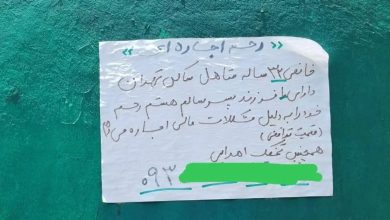 « رحم اجاره ای »
خانمی ۳۲ ساله متاهل ساکن تهران
دارای ۱ فرزند پسر سالم هستم رحم
خود را به دلیل مشکلات مالی اجاره می‌دهم
(قیمت توافقی)
همچنین تخمک اهدایی
۰۹۳